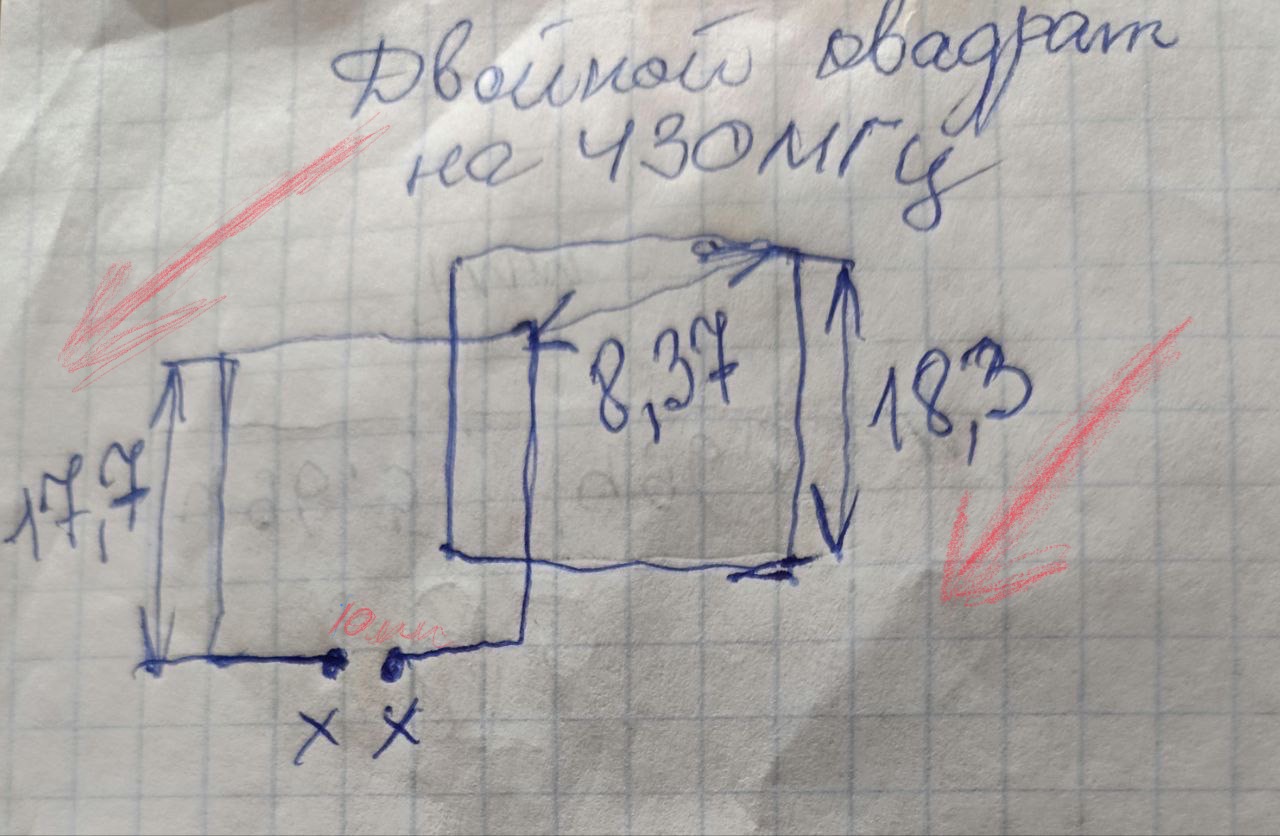 Двойной квадрат
на 430мгц
8,37
18,3
17,7
10мм
X X